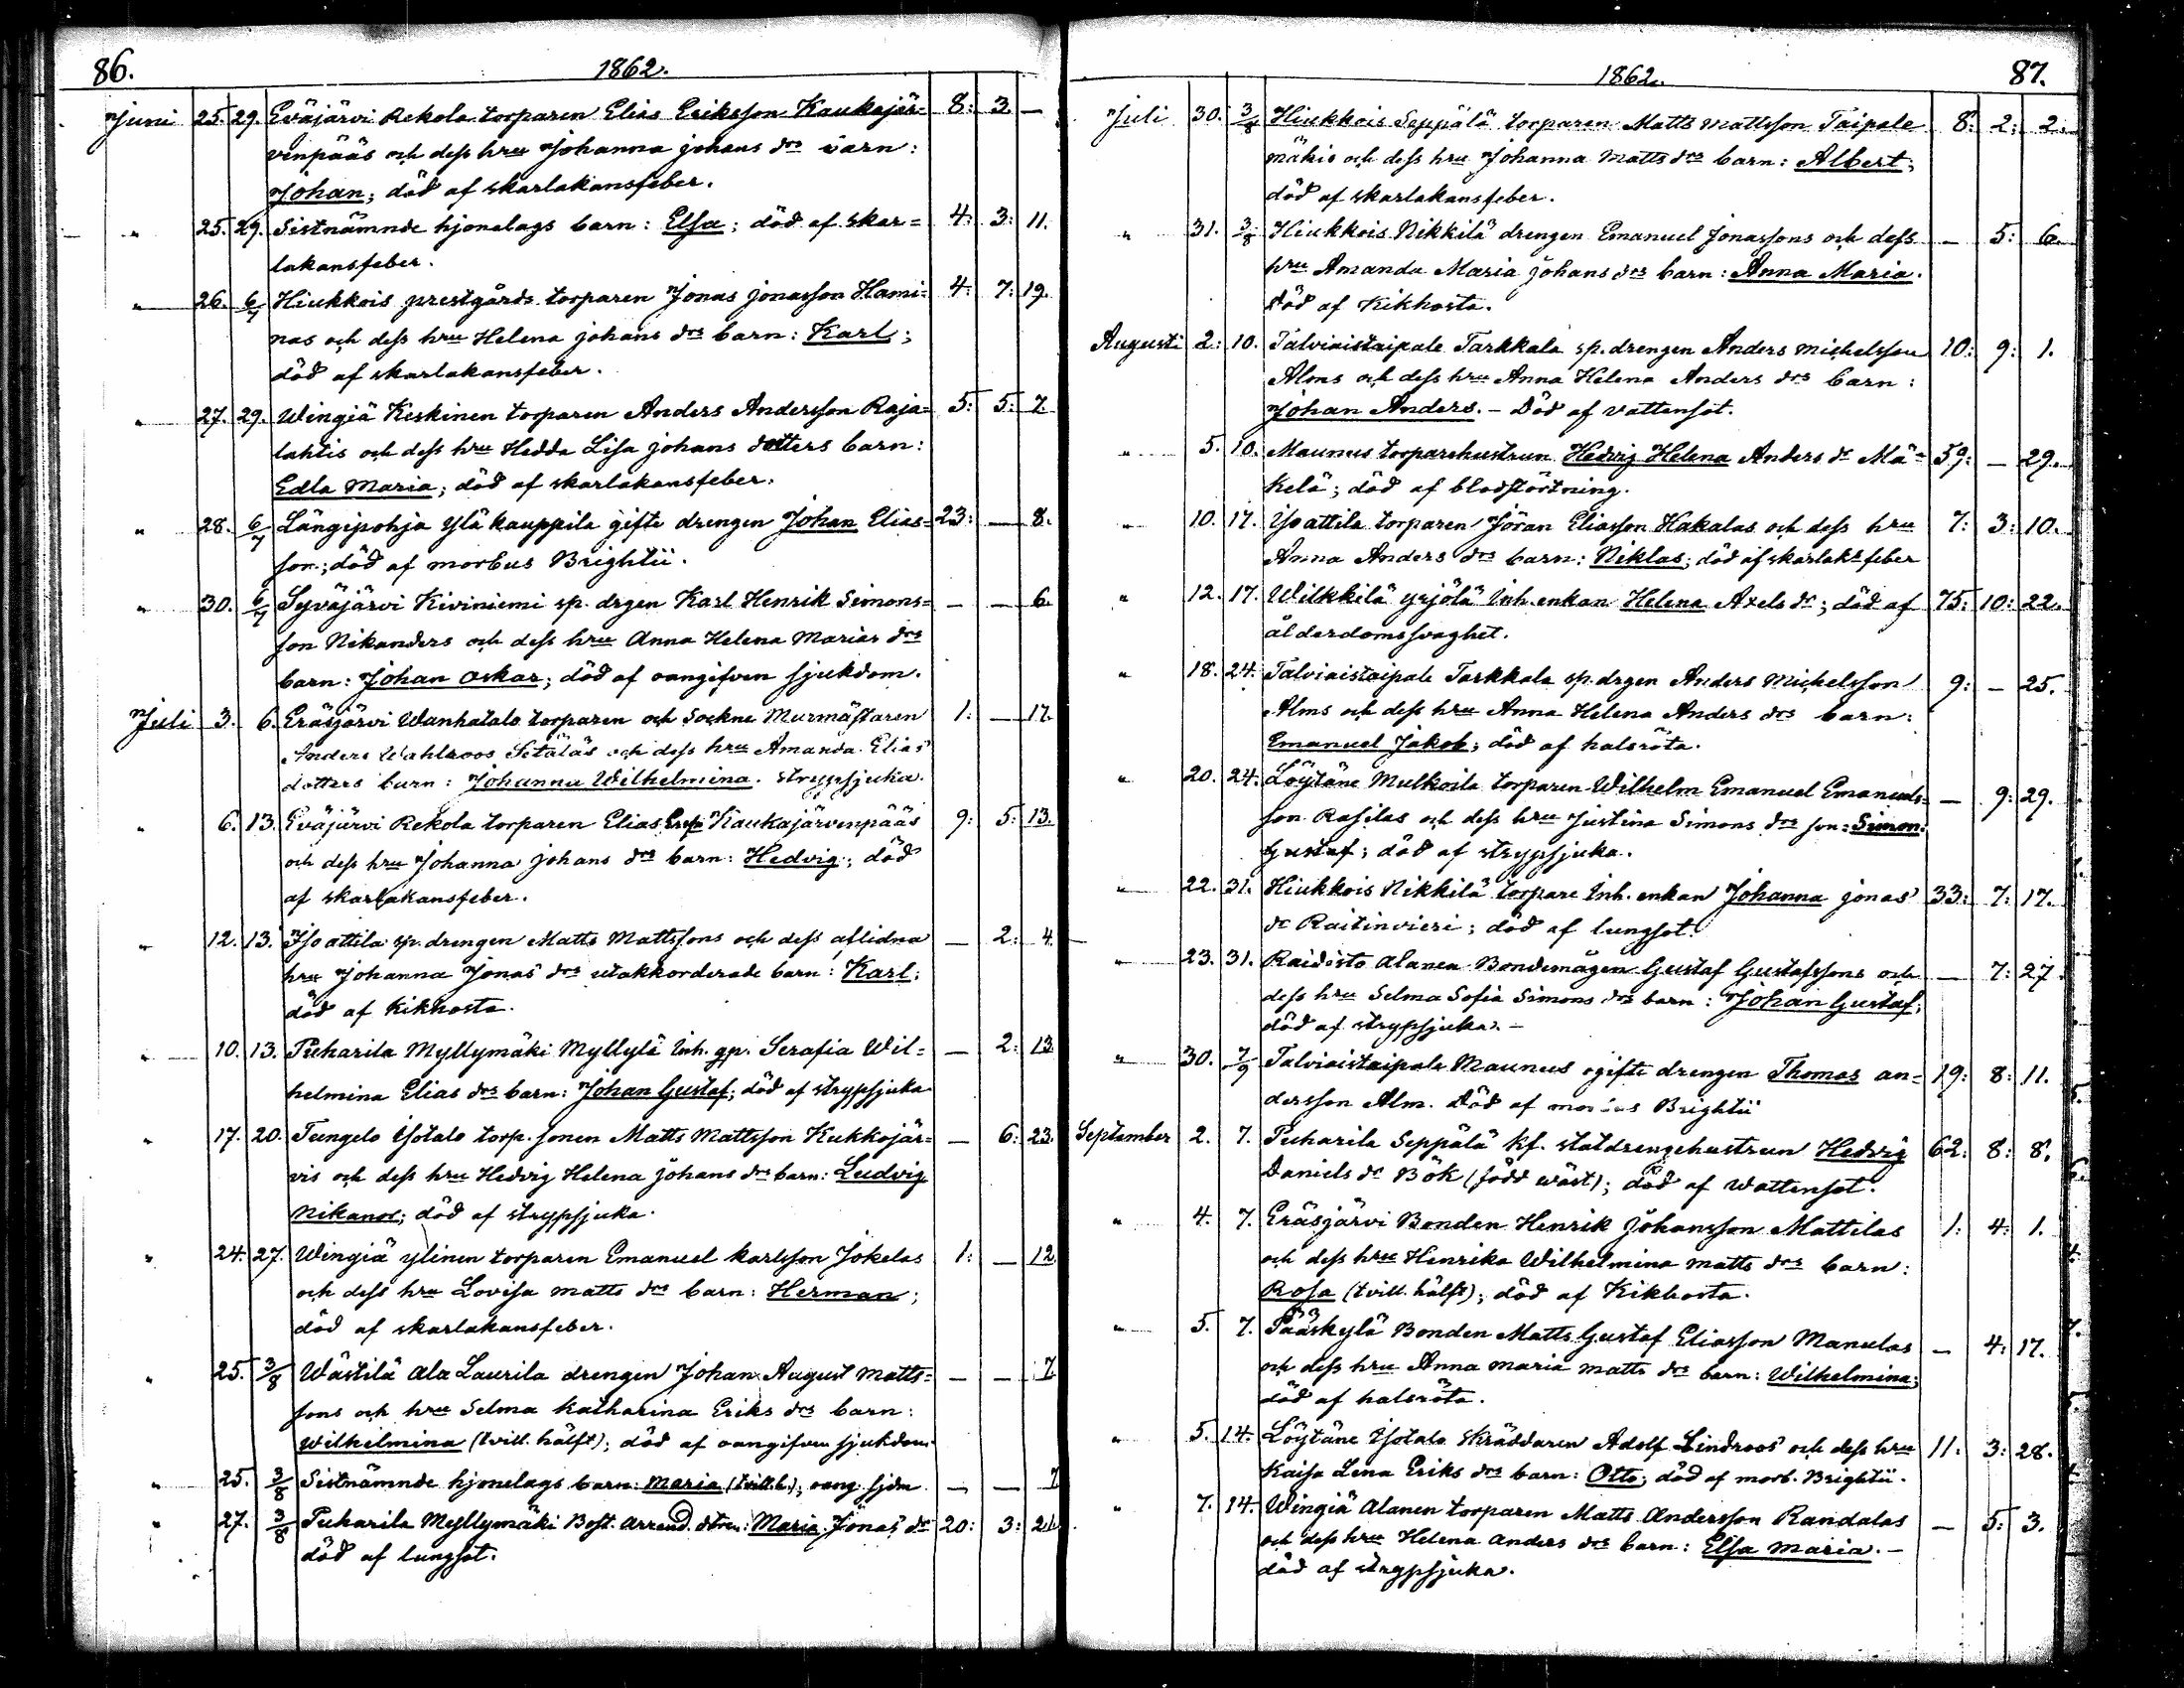 86.
1862.
Juni 25. 29. Eväjärvi Rekola torparen Elias Eriksson Kaukajär- 8: 3. —
venpääs och dess hru Johanna Johans drs barn:
Johan; död af skarlakansfeber.
" 25. 29. Sistnämnde hjonelags barn: Elsa; död af skar= 4: 3: 11.
lakansfeber.
" 26. 6/7 Hiukkois prestgårds torparen Jonas Jonasson Hami= 4: 7: 19.
nas och dess hru Helena Johans drs barn: Karl;
död af skarlakansfeber.
" 27. 29. Wingiä Keskinen torparen Anders Andersson Raja= 5: 5: 7.
lahtis och dess hru Hedda Lisa Johans dotters barn:
Edla Maria; död af skarlakansfeber.
" 28. 6/7 Längipohja Ylä kauppila gifte drengen Johan Elias= 23: — 8.
son; död af morbus Brightii.
" 30. 6/7 Syväjärvi Kiviniemi sp. drgen Karl Henrik Simons= — — 6.
son Nikanders och dess hru Anna Helena Marias drs
barn: Johan Oskar; död af oangifven sjukdom.
Juli 3. 6. Eräsjärvi Wanhatalo torparen och Sockne Murmästaren 1: — 17.
Anders Wahlroos Setäläs och dess hru Amanda Elias
dotters barn: Johanna Wilhelmina. strypsjuka.
" 6. 13. Eväjärvi Rekola torparen Elias Erss Kaukajärvenpääs 9: 5: 13.
och dess hru Johanna Johans drs barn: Hedvig; död
af skarlakansfeber.
" 12. 13. Isoattila sp. drengen Matts Mattssons och dess aflidna — 2: 4.
hru Johanna Jonas drs utakkorderade barn: Karl;
död af Kikhosta.
" 10. 13. Puharila Myllymäki Myllylä Inh. gp. Serafia Wil= — 2: 13.
helmina Elias drs barn: Johan Gustaf; död af strypsjuka
" 17. 20. Tungelo Isotalo torp. sonen Matts Mattsson Kukkojär= — 6: 23.
vis och dess hru Hedvig Helena Johans drs barn: Ludvig
Nikanor; död af strypsjuka.
" 24. 27. Wingiä Ylinen torparen Emanuel Karlsson Jokelas 1: — 12.
och dess hru Lovisa Matts drs barn: Herman;
död af skarlakansfeber.
" 25. 3/8 Wästilä Ala Laurila drengen Johan August Matts= — — 7.
sons och hru Selma Katharina Eriks drs barn:
Wilhelmina (tvill. hälft); död af oangifven sjukdom.
" 25. 3/8 Sistnämnde hjonelags barn: Maria (tvill.h.); oang. sjdm — — 7
" 27. 3/8 Puharila Myllymäki Bost. arrend. dtren: Maria Jonas dr 20: 3: 21.
död af lungsot.
1862.
87.
Juli 30. 3/8 Hiukkois Seppälä torparen Matts Mattsson Taipale 8: 2: 2.
mäkis och dess hru Johanna Matts drs barn: Albert;
död af skarlakansfeber.
" 31. 3/8 Hiukkois Nikkilä drengen Emanuel Jonassons och dess — 5: 6.
hru Amanda Maria Johans drs barn: Anna Maria.
Död af Kikhosta.
Augusti 2: 10. Talviaistaipale Tarkkala sp. drengen Anders Michelsson 10: 9: 1.
Alms och dess hru Anna Helena Anders drs barn:
Johan Anders. – Död af vattensot.
" 5. 10. Maunus torparehustrun Hedvig Helena Anders dr Mä= 59: — 29.
kelä; död af blodstörtning.
" 10. 17. Isoattila torparen Jöran Eliasson Hakalas och dess hru 7: 3: 10.
Anna Anders drs barn: Niklas; död af skarlaksfeber
" 12. 17. Wilkkilä Yrjölä Inh. enkan Helena Axels dr; död af 75: 10: 22.
ålderdomssvaghet.
" 18. 24. Talviaistaipale Tarkkala sp. drgen Anders Michelsson 9: — 25.
Alms och dess hru Anna Helena Anders drs barn:
Emanuel Jakob; död af halsröta.
" 20. 24. Löytäne Mulkoila torparen Wilhelm Emanuel Emanuels= — 9: 29.
son Rasilas och dess hru Justina Simons drs son: Simon
Gustaf; död af strypsjuka.
" 22. 31. Hiukkois Nikkilä torpare Inh. enkan Johanna Jonas 33: 7: 17.
dr Raitinvieri; död af lungsot.
" 23. 31. Raidisto Alanen Bondemågen Gustaf Gustafssons och — 7: 27.
dess hru Selma Sofia Simons drs barn: Johan Gustaf;
död af strypsjuka. –
" 30. 7/9 Talviaistaipale Maunus ogifte drengen Thomas An= 19: 8: 11.
dersson Alm. Död af morbus Brightii
September 2. 7. Puharila Seppälä kf. statdrengehustrun Hedvig 62: 8: 8.
Daniels dr Bök (född Wäst); död af Wattensot.
" 4. 7. Eräsjärvi Bonden Henrik Johansson Mattilas 1: 4: 1.
och dess hru Henrika Wilhelmina Matts drs barn:
Rosa (tvill. hälft); död af Kikhosta.
" 5. 7. Pääskylä Bonden Matts Gustaf Eliasson Manulas — 4: 17.
och dess hru Anna Maria Matts drs barn: Wilhelmina;
död af halsröta.
" 5. 14. Löytäne Isotalo Skräddaren Adolf Lindroos och dess hru 11: 3: 28.
Kaisa Lena Eriks drs barn: Otto; död af morb. Brightii.
" 7. 14. Wingiä Alanen torparen Matts Andersson Randalas — 5: 3.
och dess hru Helena Anders drs barn: Elsa Maria. –
död af strypsjuka.